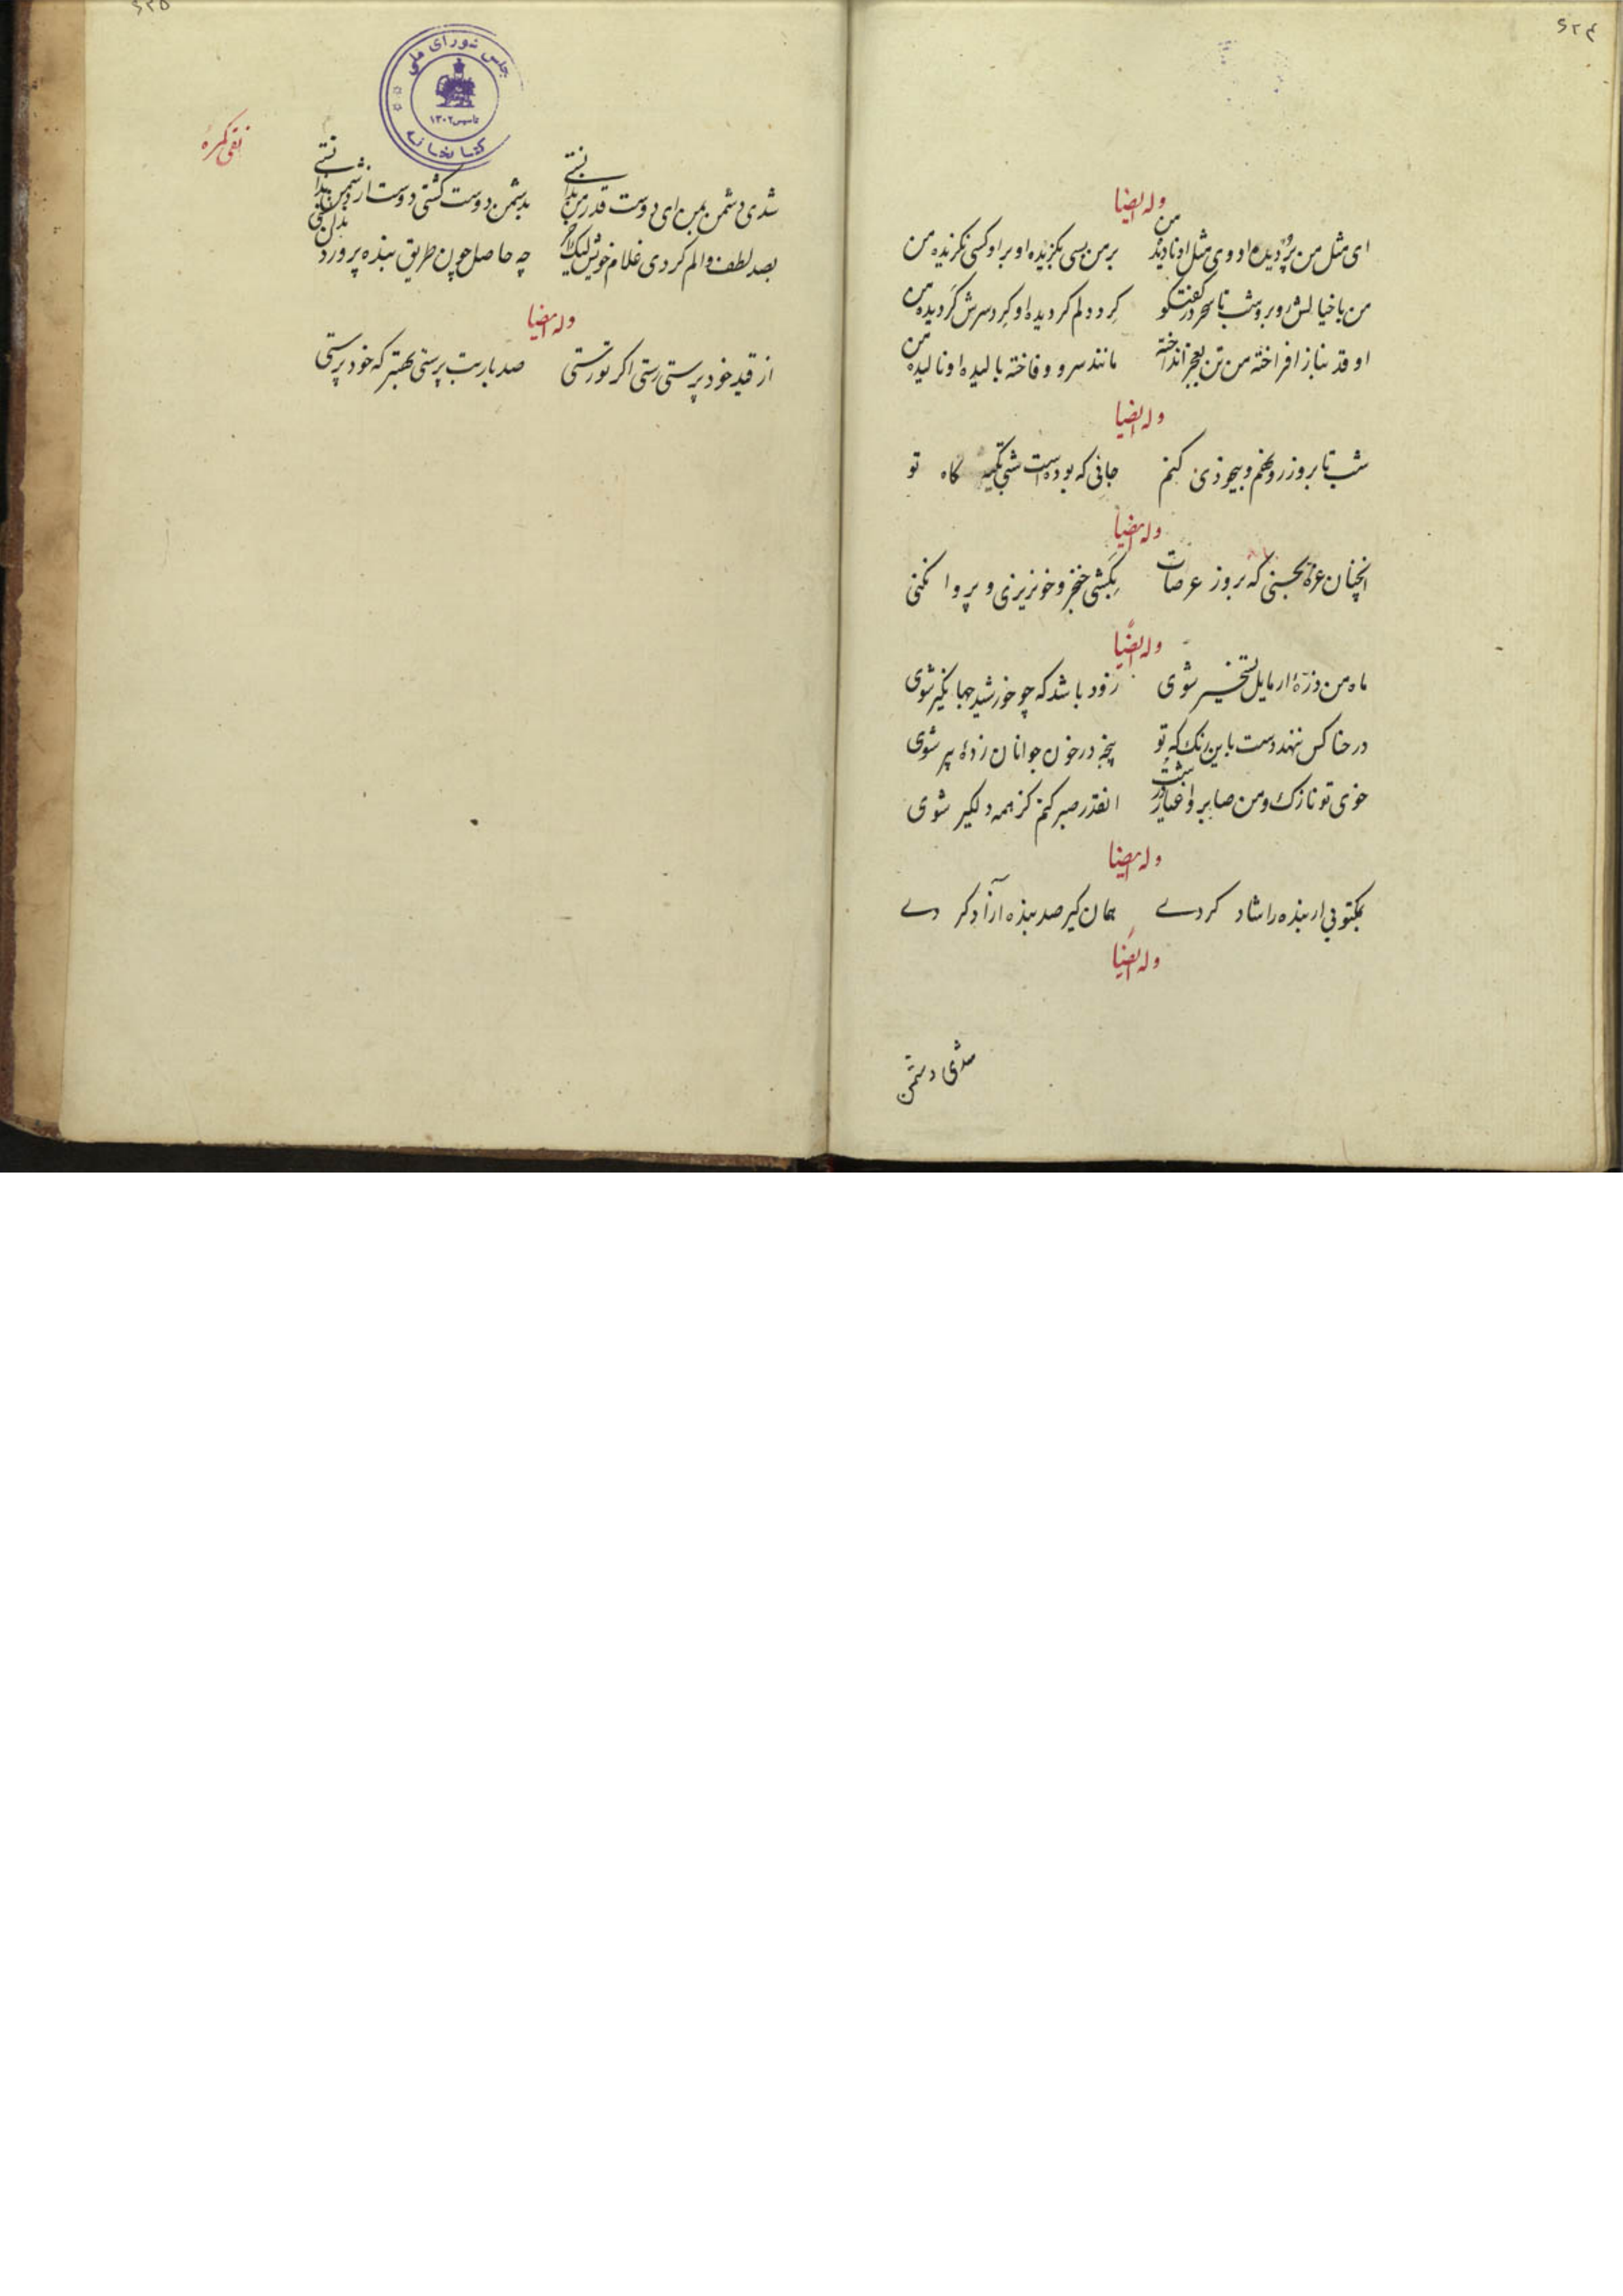 ۶۲۴
وله ایضا
ای مثل من پر دیده او وی مثل او نادیده من بر من بسی بگزیده او بر او کسی نگزیده من
من با خیالش روبرو شب تا سحر در گفتگو گرد دلم گردیده او گرد سرش گردیده من
او قد بناز افراخته من تن بعجز انداخته مانند سرو و فاخته بالیده او نالیده من
وله ایضا
شب تا بروز رو نهم و بیخودی کنم جائی که بوده است شبی تکیه گاه تو
وله ایضا
آنچنان غره بحسنی که بروز عرصات بکشی خنجر و خونریزی و پروا نکنی
وله ایضا
ماه من ذره ار مایل تسخیر شوی زود باشد که چو خورشید جهانگیر شوی
در حنا کس ننهد دست باین رنگ که تو پنجه در خون جوانان زدهٔ پیر شوی
خوی تو نازک و من صابر و اغیار درشت انقدر صبر کنم کز همه دلگیر شوی
وله ایضا
بمکتوبی ار بنده را شاد کردے همان گیر صد بنده آزاد کردے
وله ایضا
شدی دشمن
۶۲۵
مجلس شورای ملی
تاسیس ۱۳۰۲
کتابخانه
نقی کمره
شدی دشمن بمن ای دوست قدر من ندانستے بدشمن دوست گشتی دوست از دشمن ندانستے
بصد لطف والم کردی غلام خویش لیک آخر چه حاصل چون طریق بنده پروردن
وله ایضا
از قید خود پرستی رستی اگر تو رستی صد بار بت پرستی بهتر که خود پرستی